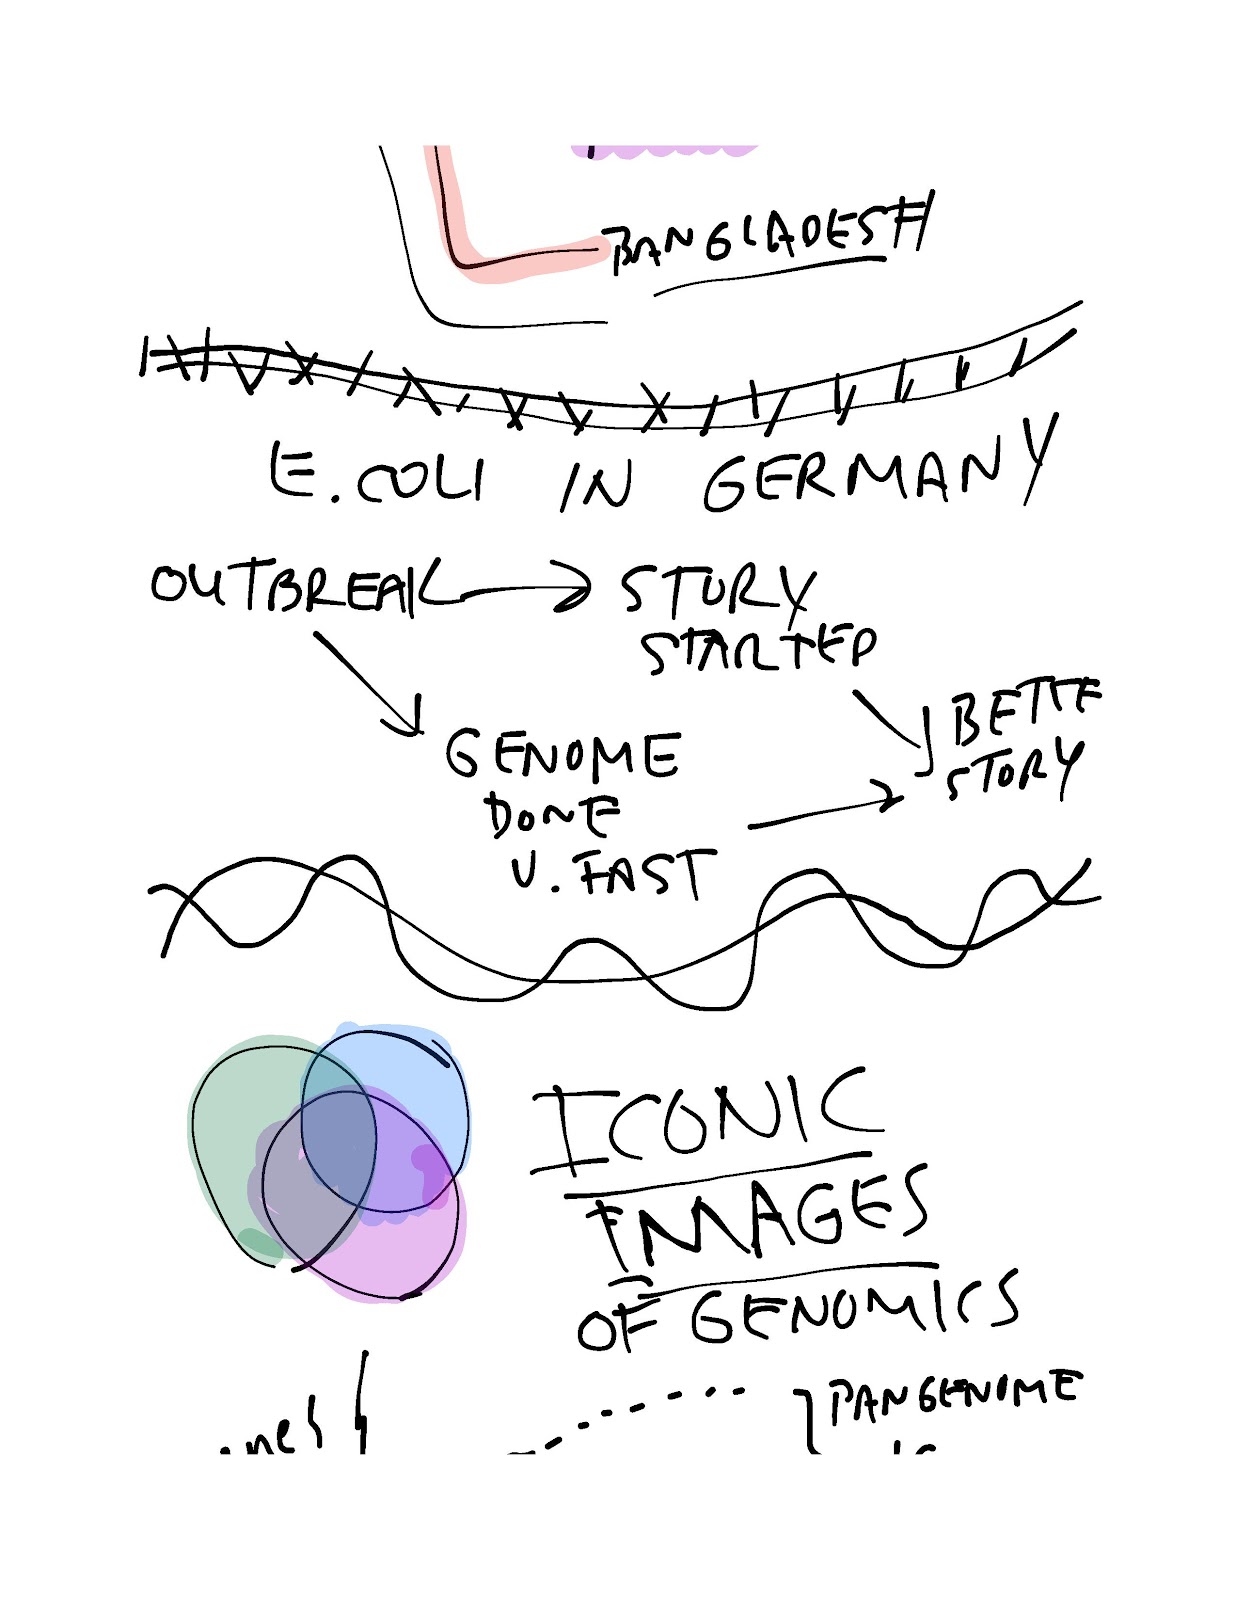 BANGLADESH
E.COLI IN GERMANY
OUTBREAK STORY
STARTED
BETTE
STORY
GENOME
DONE
V. FAST
ICONIC
IMAGES
OF GENOMICS
PANGENOME